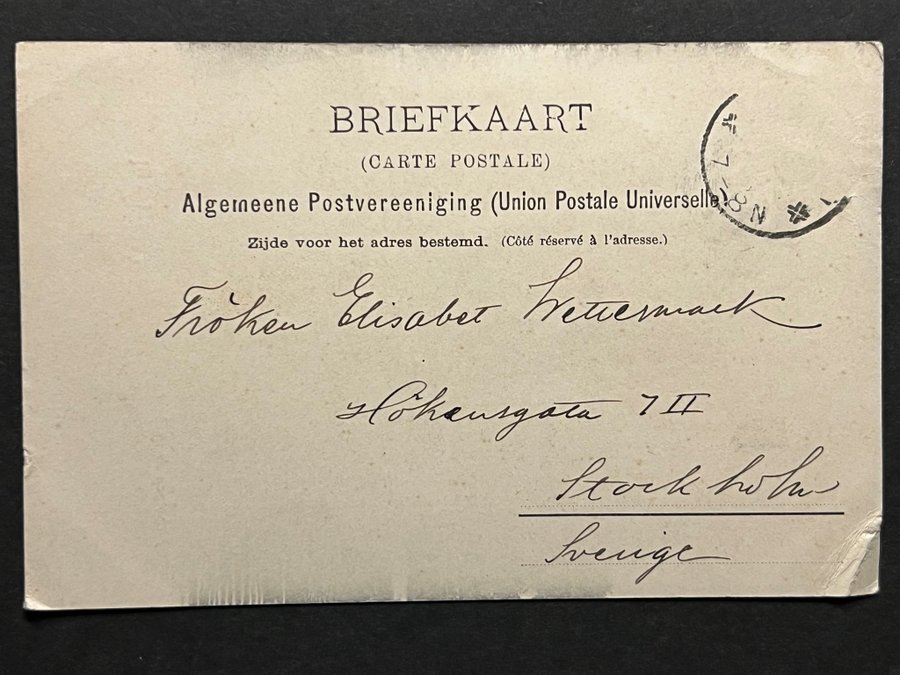 BRIEFKAART
(CARTE POSTALE)
Algemeene Postvereeniging (Union Postale Universelle)
Zijde voor het adres bestemd. (Côté réservé à l'adresse.)
Fröken Elisabet Wettermark
Hökensgata 7 II
Stockholm
Sverige